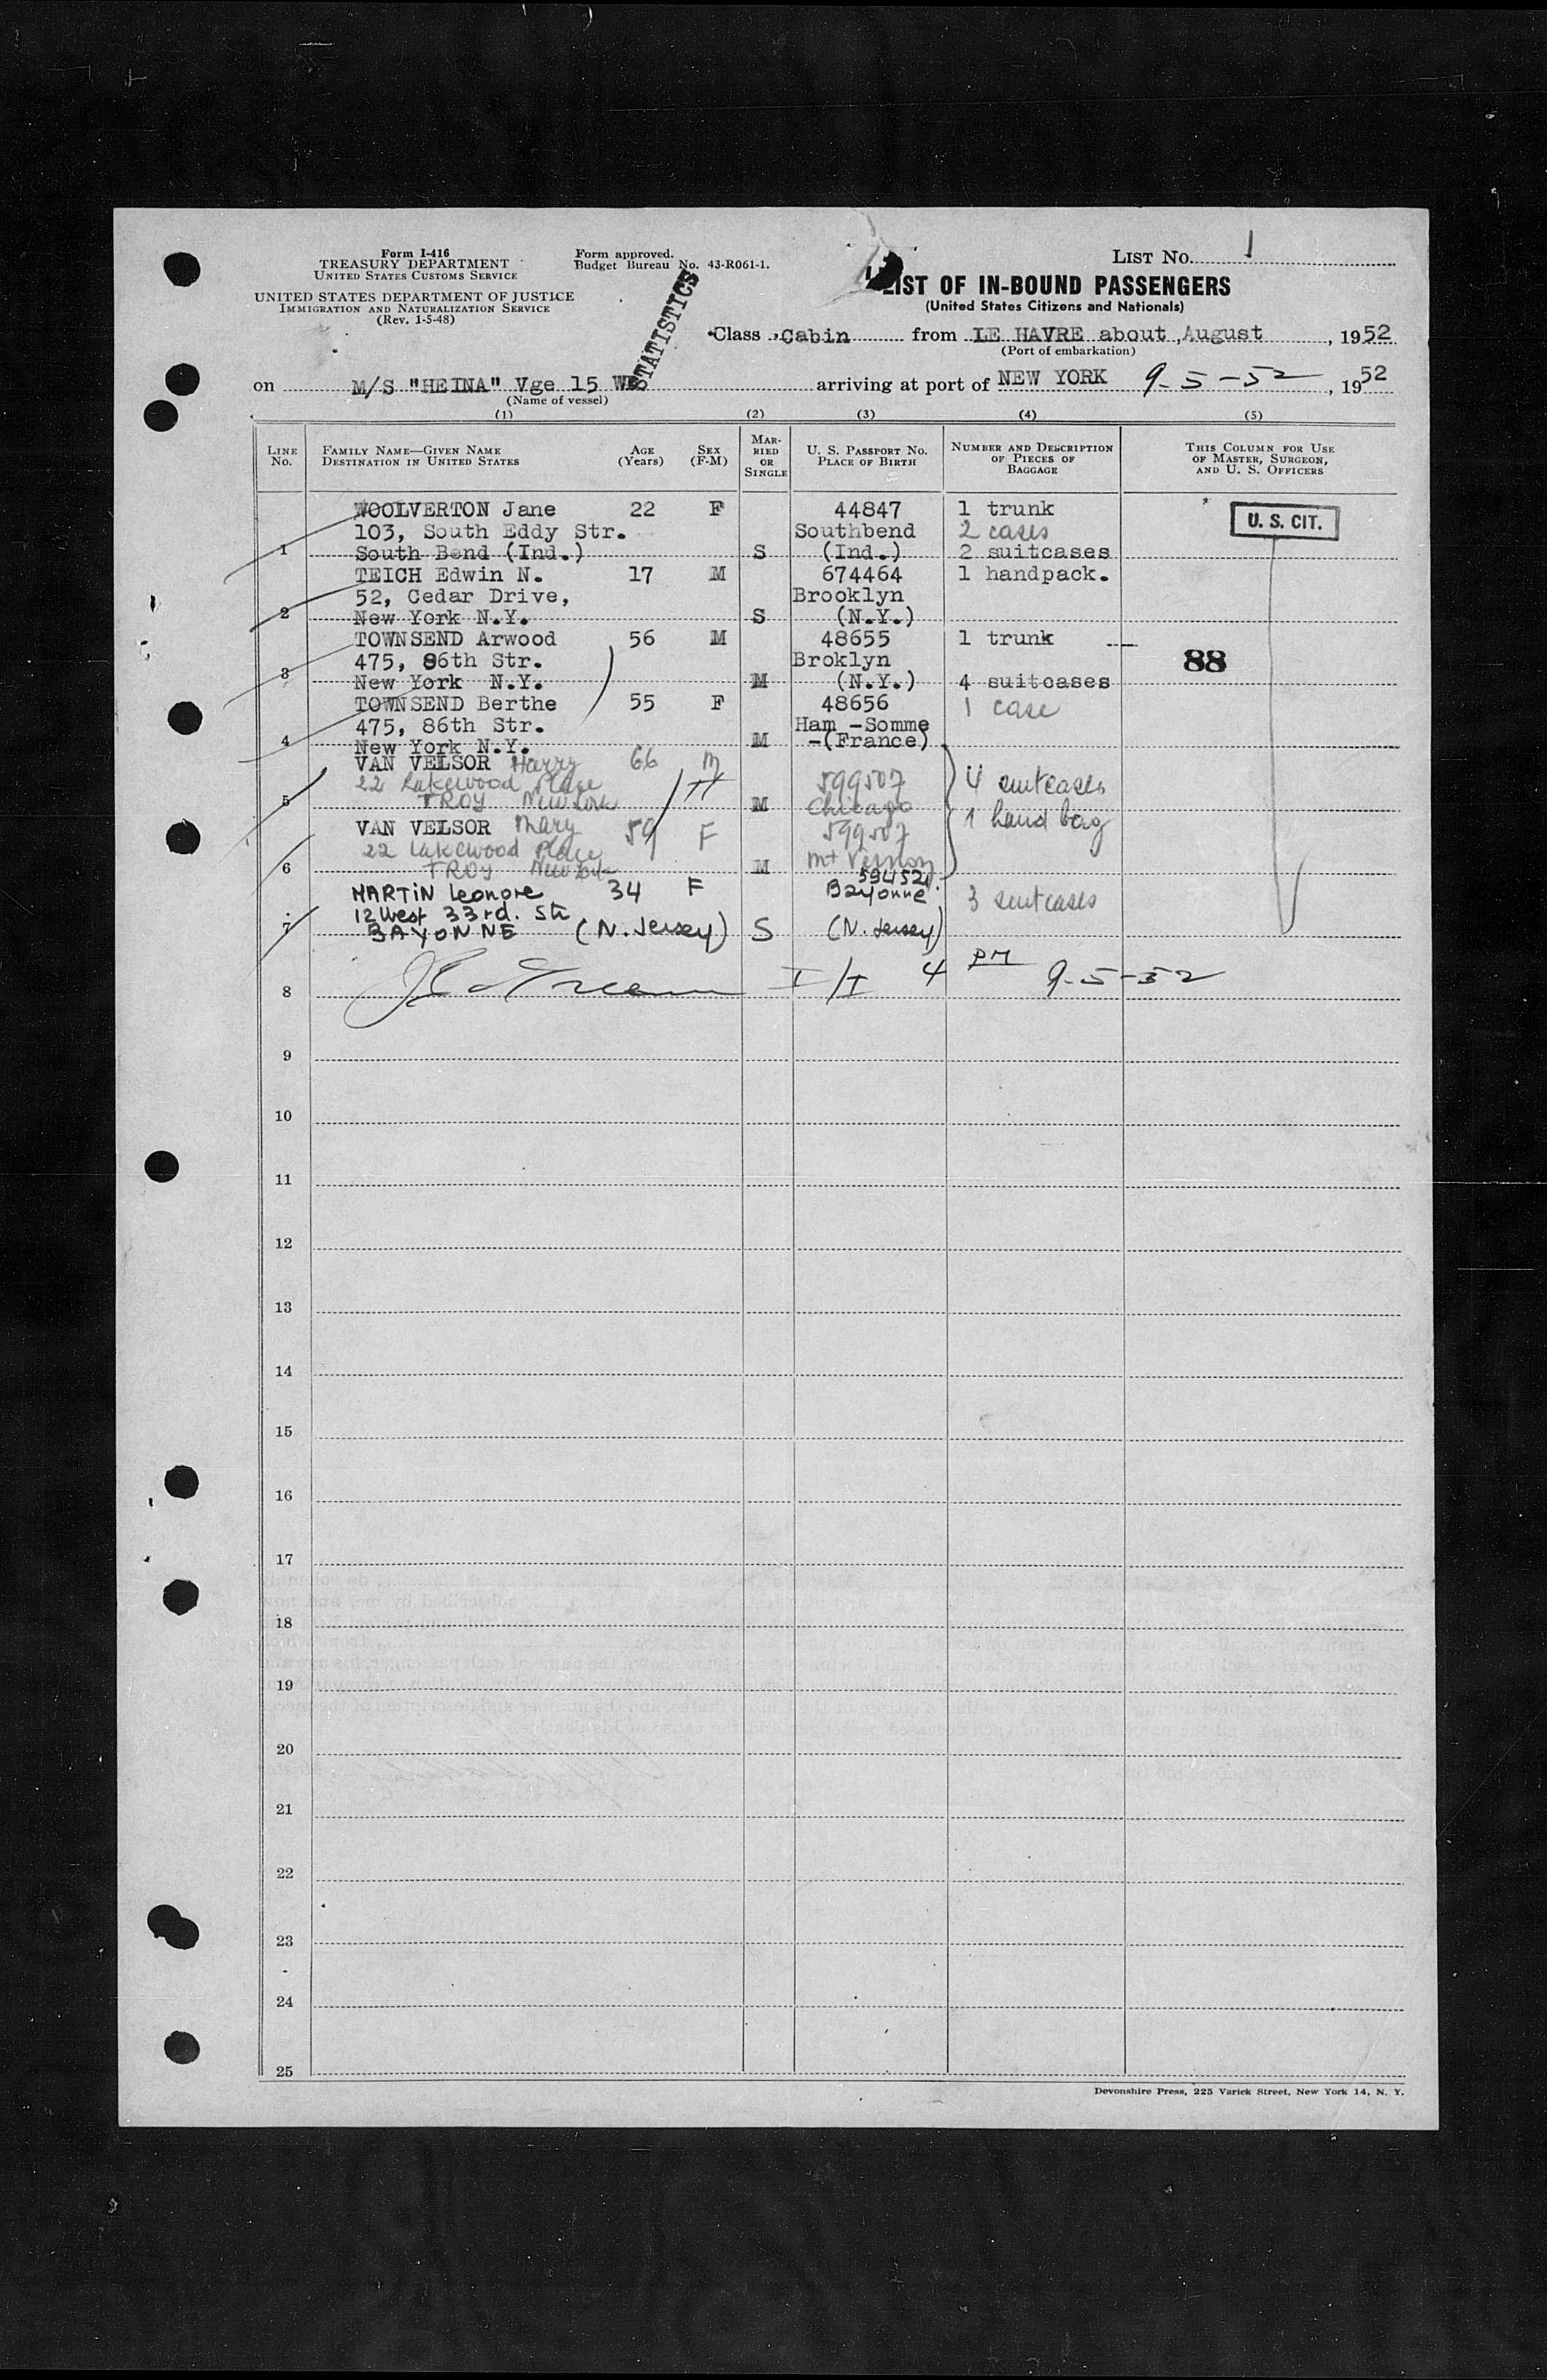 Form I-416
TREASURY DEPARTMENT
UNITED STATES CUSTOMS SERVICE
UNITED STATES DEPARTMENT OF JUSTICE
IMMIGRATION AND NATURALIZATION SERVICE
(Rev. 1-5-48)
Form approved.
Budget Bureau No. 43-R061-1.
STATISTICS
LIST NO. 1
LIST OF IN-BOUND PASSENGERS
(United States Citizens and Nationals)
Class Cabin from LE HAVRE about August, 1952
(Port of embarkation)
on M/S "HEINA" Vge 15 arriving at port of NEW YORK 9-5-52, 1952
(Name of vessel)
(1) (2) (3) (4) (5)
LINE NO.
FAMILY NAME—GIVEN NAME
DESTINATION IN UNITED STATES
AGE (Years)
SEX (F-M)
MARRIED OR SINGLE
U. S. PASSPORT NO.
PLACE OF BIRTH
NUMBER AND DESCRIPTION OF PIECES OF BAGGAGE
THIS COLUMN FOR USE OF MASTER, SURGEON, AND U. S. OFFICERS
WOOLVERTON Jane 22 F 44847 1 trunk
103, South Eddy Str. Southbend 2 cases
1 South Bend (Ind.) S (Ind.) 2 suitcases
U. S. CIT.
TEICH Edwin N. 17 M 674464 1 handpack.
52, Cedar Drive, Brooklyn
2 New York N.Y. S (N.Y.)
TOWNSEND Arwood 56 M 48655 1 trunk
475, 86th Str. Broklyn 88
3 New York N.Y. M (N.Y.) 4 suitcases
TOWNSEND Berthe 55 F 48656 1 case
475, 86th Str. Ham -Somme
4 New York N.Y. M -(France)
VAN VELSOR Harry 66 M 599507 4 suitcases
22 Lakewood Place
5 TROY New York M Chicago 1 hand bag
VAN VELSOR Mary 59 F 599507
22 Lakewood Place Mt Vernon
6 TROY New York M
MARTIN Leonore 34 F 594521 3 suitcases
12 West 33rd. Str Bayonne
7 BAYONNE (N. Jersey) S (N. Jersey)
8 I/I 4 PM 9-5-52
9
10
11
12
13
14
15
16
17
18
19
20
21
22
23
24
25
Devonshire Press, 225 Varick Street, New York 14, N. Y.